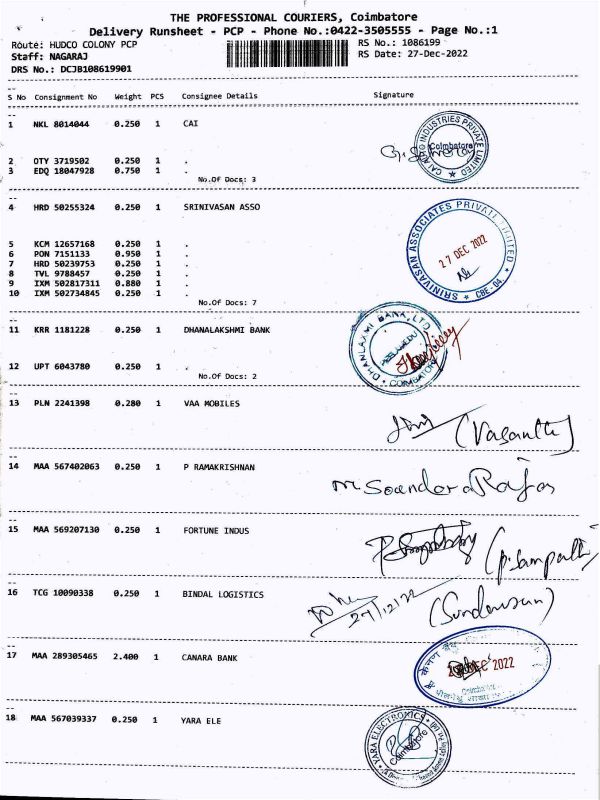 THE PROFESSIONAL COURIERS, Coimbatore
Delivery Runsheet - PCP - Phone No.:0422-3505555 - Page No.:1
Route: HUDCO COLONY PCP RS No.: 1086199
Staff: NAGARAJ RS Date: 27-Dec-2022
DRS No.: DCJB108619901
S No Consignment No Weight PCS Consignee Details Signature
1 NKL 8014044 0.250 1 CAI
INDUSTRIES PRIVATE LIMITED
Coimbatore
2 OTY 3719502 0.250 1 .
3 EDQ 18047928 0.750 1 .
No.Of Docs: 3
4 HRD 50255324 0.250 1 SRINIVASAN ASSO
SRINIVASAN ASSOCIATES PRIVATE LIMITED
27 DEC 2022
CBE-04.
5 KCM 12657168 0.250 1 .
6 PON 7151133 0.950 1 .
7 HRD 50239753 0.250 1 .
8 TVL 9788457 0.250 1 .
9 IXM 502817311 0.880 1 .
10 IXM 502734845 0.250 1 .
No.Of Docs: 7
11 KRR 1181228 0.250 1 DHANALAKSHMI BANK
DHANLAXMI BANK, LTD
COIMBATORE
12 UPT 6043780 0.250 1 .
No.Of Docs: 2
13 PLN 2241398 0.280 1 VAA MOBILES
(Vasanth)
14 MAA 567402063 0.250 1 P RAMAKRISHNAN
M. Soundara Rajan
15 MAA 569207130 0.250 1 FORTUNE INDUS
(P. Sampath)
16 TCG 10090338 0.250 1 BINDAL LOGISTICS
27/12/22
(Sundaresan)
17 MAA 289305465 2.400 1 CANARA BANK
DEC 2022
Coimbatore
18 MAA 567039337 0.250 1 YARA ELE
YARA ELECTRONICS
Coimbatore